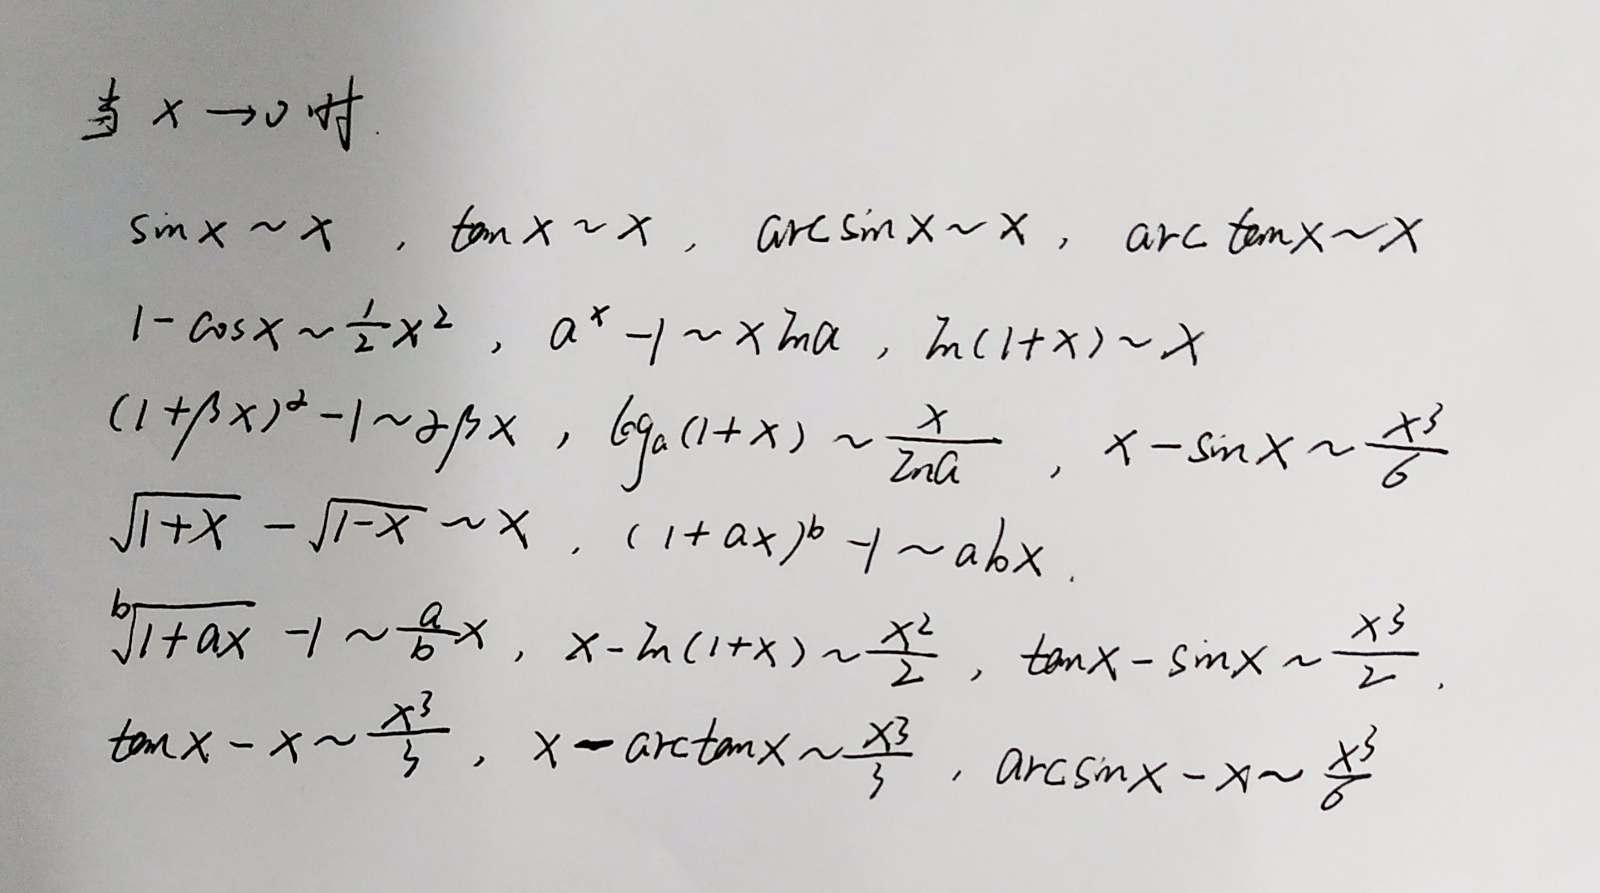 当 x → 0 时.
sin x ~ x , tan x ~ x , arcsin x ~ x , arc tan x ~ x
1 - cos x ~ \frac{1}{2}x^2 , a^x - 1 ~ x ln a , ln(1+x) ~ x
(1+βx)^α - 1 ~ αβx , log_a(1+x) ~ \frac{x}{ln a} , x - sin x ~ \frac{x^3}{6}
\sqrt{1+x} - \sqrt{1-x} ~ x . (1+ax)^b - 1 ~ abx .
\sqrt[b]{1+ax} - 1 ~ \frac{a}{b}x , x - ln(1+x) ~ \frac{x^2}{2} , tan x - sin x ~ \frac{x^3}{2} .
tan x - x ~ \frac{x^3}{3} , x - arctan x ~ \frac{x^3}{3} , arcsin x - x ~ \frac{x^3}{6}